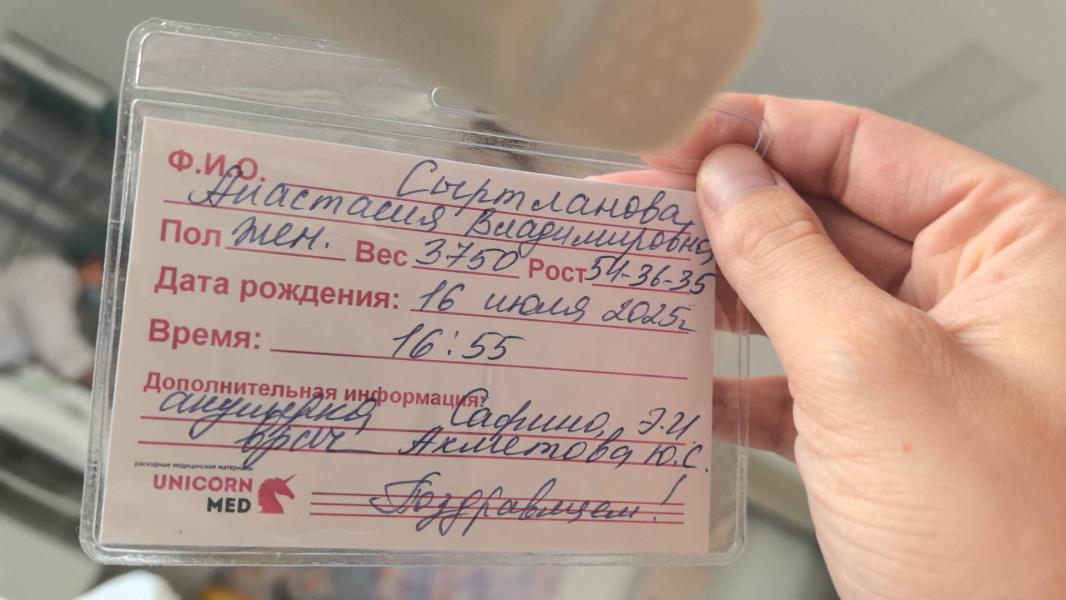 Ф.И.О. Сыртланова
Анастасия Владимировна
Пол жен. Вес 3750 Рост 54-36-35
Дата рождения: 16 июля 2025г.
Время: 16:55
Дополнительная информация:
акушерка Сафина Э.И.
врач Ахметова Ю.С.
расходные медицинские материалы
UNICORN
MED
Поздравляем!